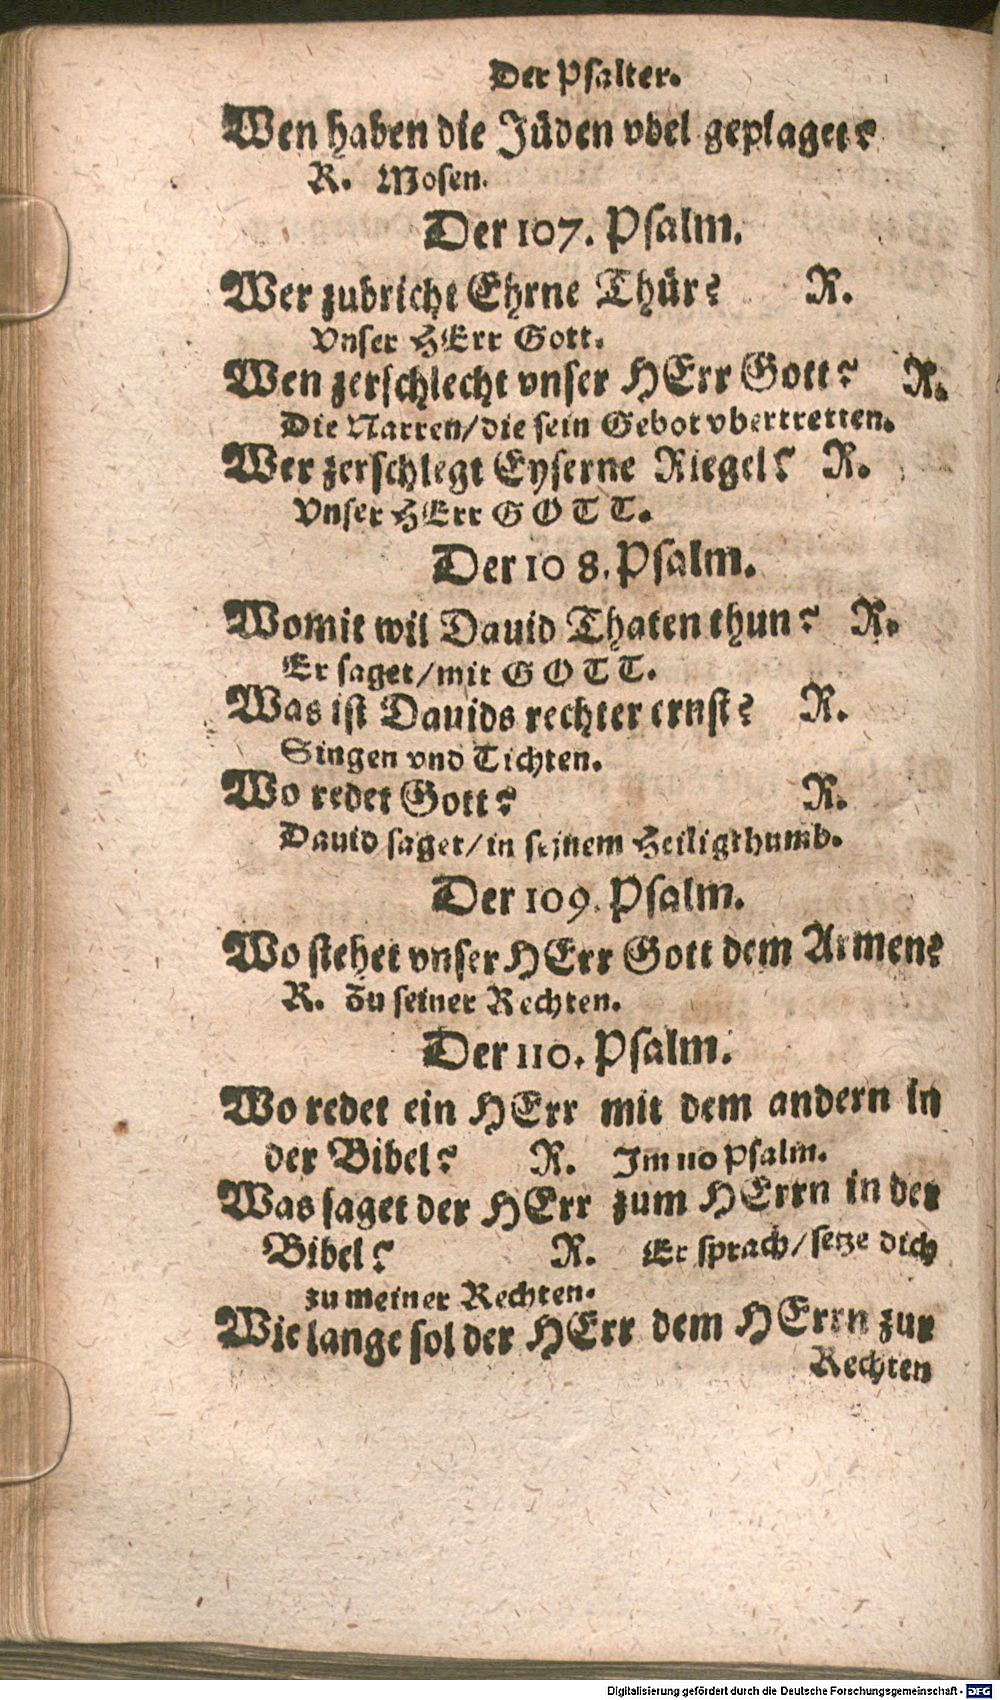 Der Psalter.
Wen haben die Jüden vbel geplaget?
R. Mosen.
Der 107. Psalm.
Wer zubricht Ehrne Thür? R.
Vnser HErr Gott.
Wen zerschlecht vnser HErr Gott? R.
Die Narren/die sein Gebot vbertretten.
Wer zerschlegt Eyserne Riegel? R.
Vnser HErr GOTT.
Der 108. Psalm.
Womit wil Dauid Thaten thun? R.
Er saget/mit GOTT.
Was ist Dauids rechter ernst? R.
Singen vnd Tichten.
Wo redet Gott? R.
Dauid saget/in seinem Heiligthumb.
Der 109. Psalm.
Wo stehet vnser HErr Gott dem Armen?
R. Zu seiner Rechten.
Der 110. Psalm.
Wo redet ein HErr mit dem andern in
der Bibel? R. Im 110 Psalm.
Was saget der HErr zum HErrn in der
Bibel? R. Er sprach/setze dich
zu meiner Rechten.
Wie lange sol der HErr dem HErrn zur
Rechten
Digitalisierung gefördert durch die Deutsche Forschungsgemeinschaft - DFG